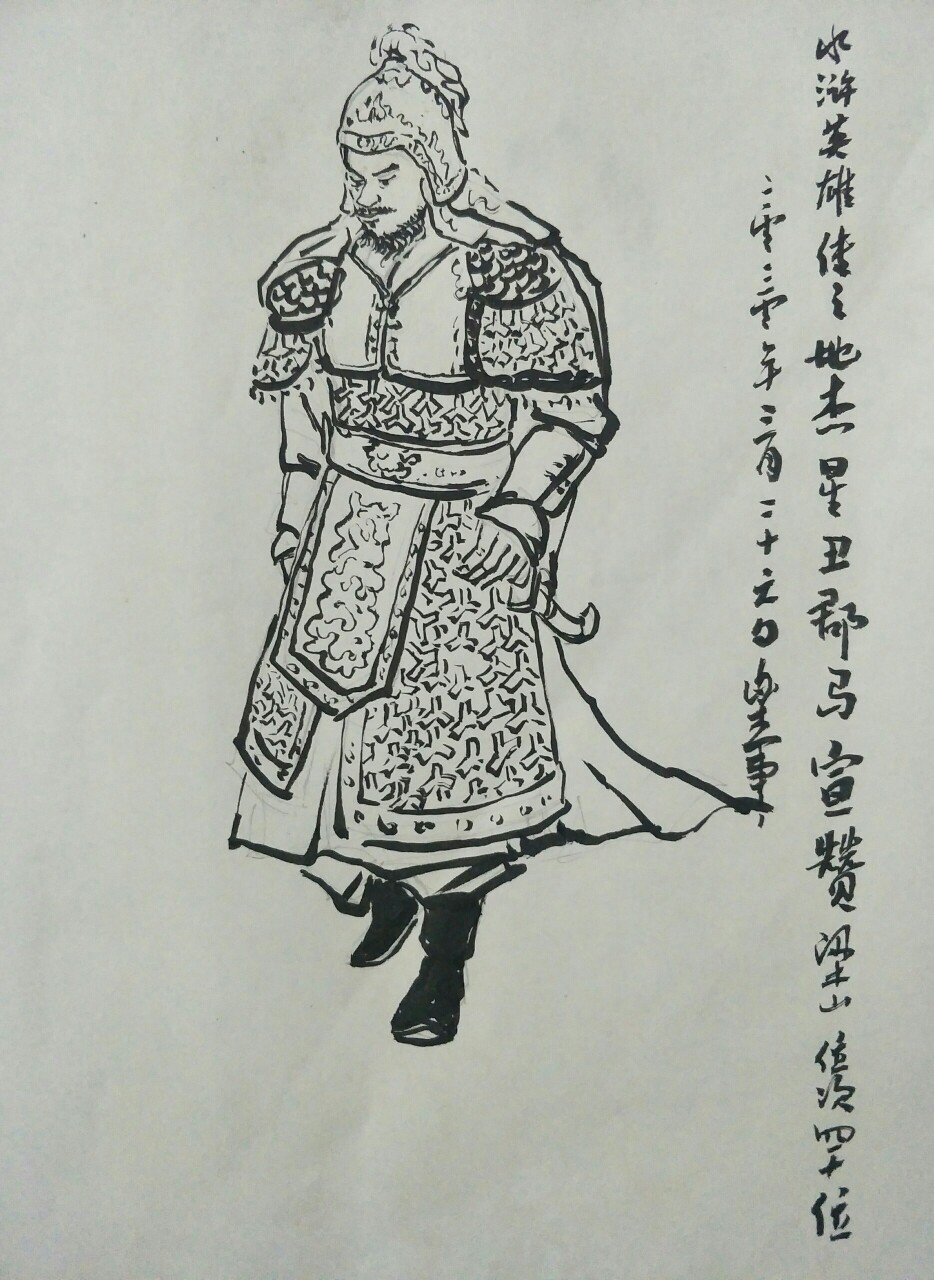 水浒英雄传之地杰星丑郡马宣赞梁山位次四十位
二零二零年三月二十六日